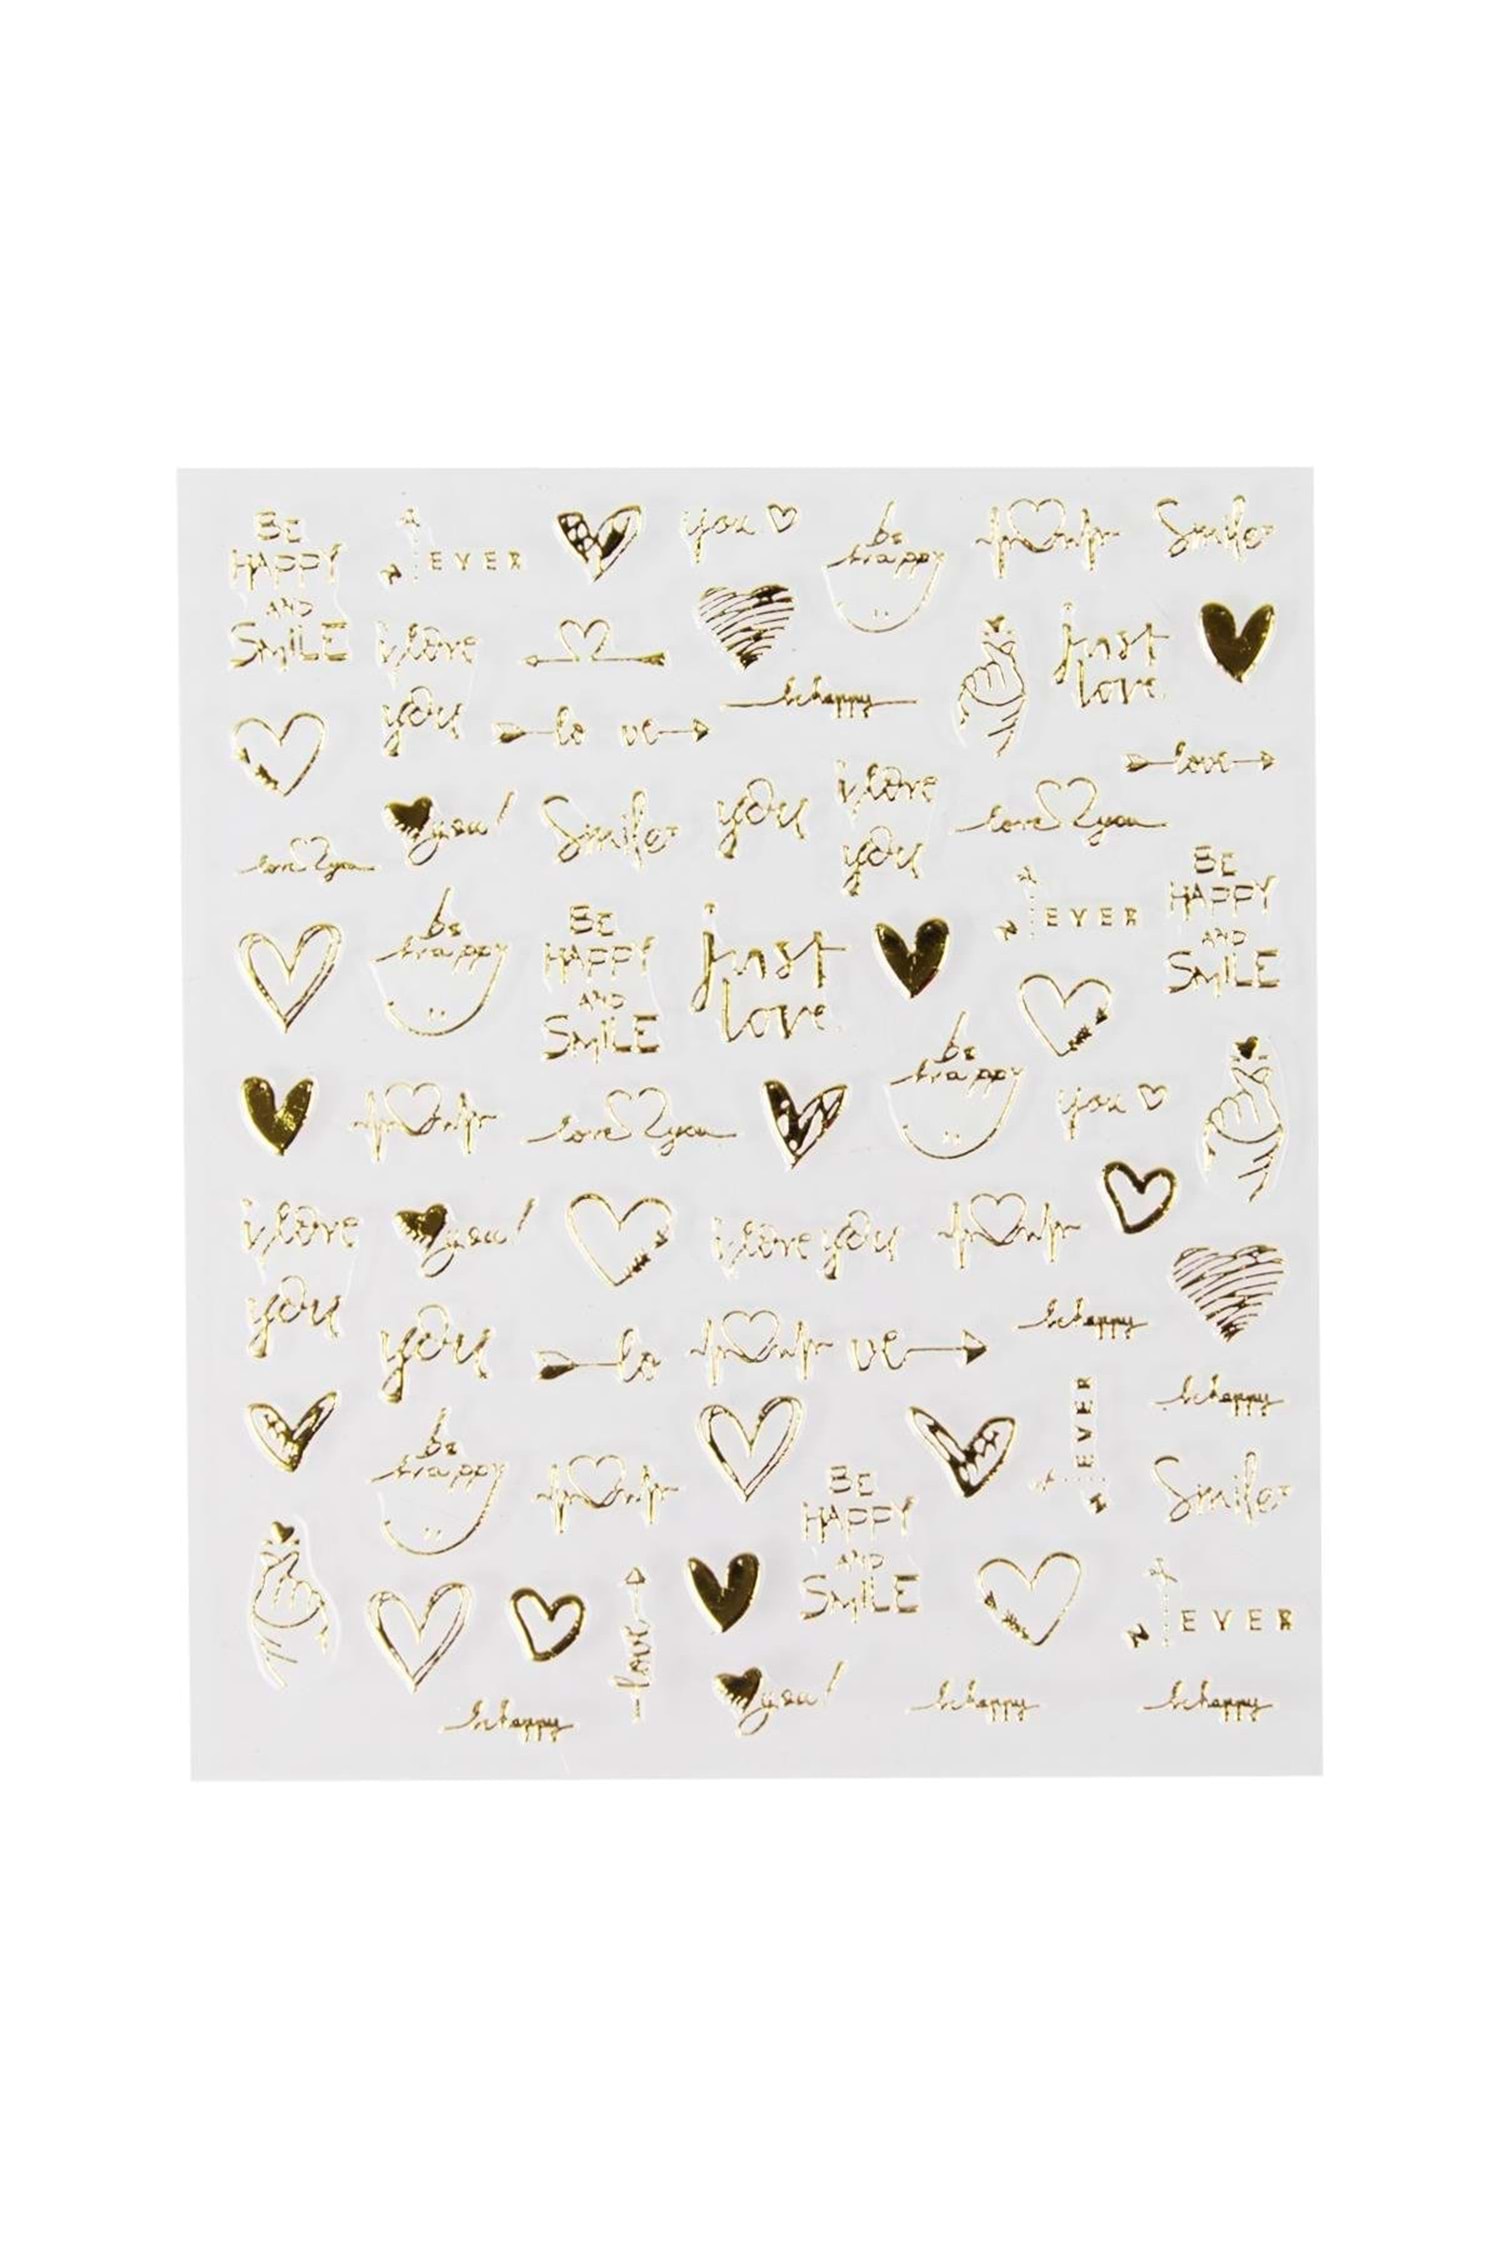 BE
HAPPY
AND
SMILE
NEVER
you
be
happy
Smile
i love
you
just
love.
be happy
lo ve
love
you!
Smile
you
i love
you
love you
love you
BE
HAPPY
AND
SMILE
NEVER
be
happy
BE
HAPPY
AND
SMILE
just
love.
be
happy
you
love you
i love
you
you!
i love you
be happy
you
lo
ve
be happy
NEVER
be
happy
BE
HAPPY
AND
SMILE
Smile
NEVER
love
you!
be happy
be happy
be happy